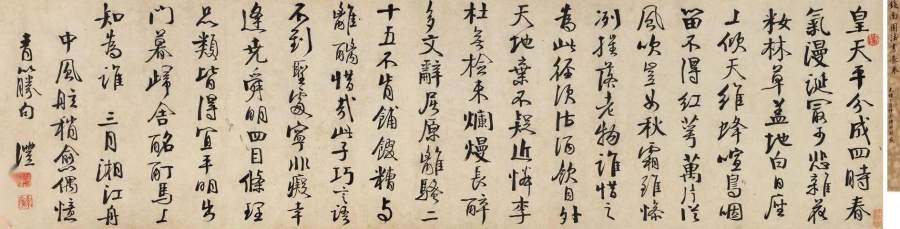 皇天平分成四時春
氣漫誕最可悲雜花
妝林草蓋地白日座
上傾天維蜂喧鳥咽
留不得紅萼萬片從
風吹豈如秋霜雖慘
冽摧落老物誰惜之
為此徑須沽酒飲自外
天地棄不疑近憐李
杜無檢束爛熳長醉
多文辭屈原離騷二
十五不肯餔餟糟與
離醨惜哉此子巧言語
不到聖處寧非癡幸
逢堯舜明四目條理
品類皆得宜平明出
門暮歸舍酩酊馬上
知為誰 三月湘江舟
中風舵稍愈偶憶
勝句 灃
錢南園法書長卷